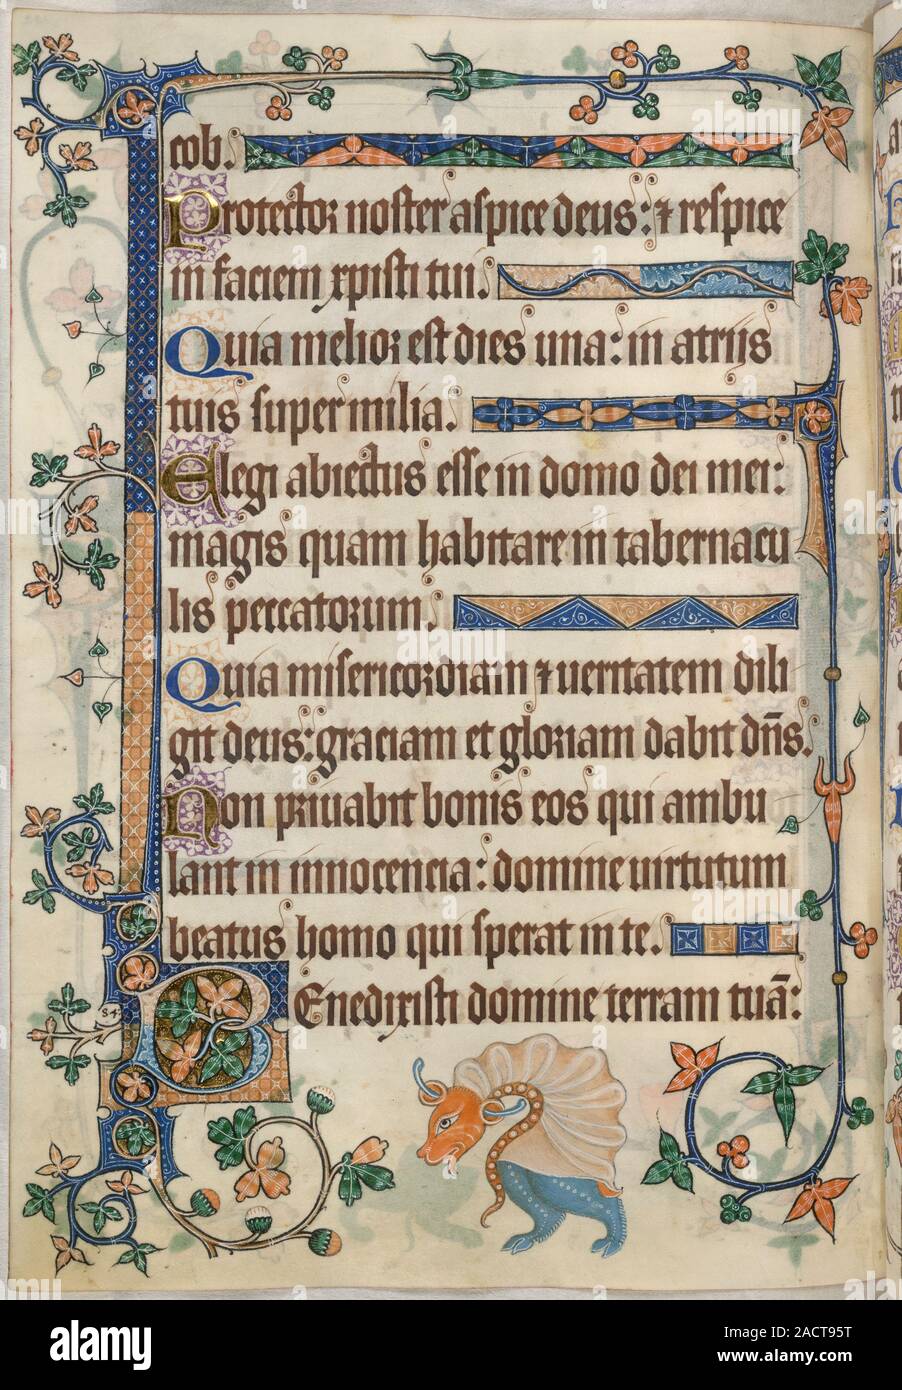 cob.
Protector noster aspice deus: ⁊ respice
in faciem xpisti tui.
Quia melior est dies una: in atriis
tuis super milia.
Elegi abiectus esse in domo dei mei:
magis quam habitare in tabernacu
lis peccatorum.
Quia misericordiam ⁊ ueritatem dili
git deus: graciam et gloriam dabit dn̄s.
Non priuabit bonis eos qui ambu
lant in innocencia: domine uirtutum
beatus homo qui sperat in te.
84.
Benedixisti domine terram tuā:
alamy
Image ID: 2ACT95T
www.alamy.com